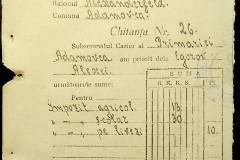 Raionul Alexanderfeld.
Comuna Adamovca.
Chitanța Nr. 26.
Subsemnatul Casier al Primariei
Adamovca am primit dela Egorov
Alexei
următoarele sume:
SUMA
Pentru
Impozit agricol 13
" — școlar 30
" —, pe livezi 10